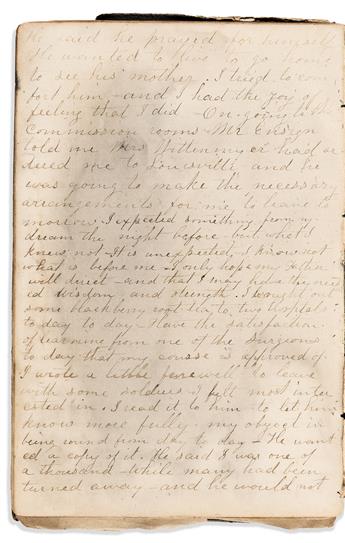 He said he prayed for himself
He wanted to live to go home
to see his mother. I tried to com-
fort him - and I had the joy of
feeling that I did - On going to the
Commission rooms - Mr Ensign
told me Mrs Wittenmyer had or-
dered me to Louisville and he
was going to make the necessary
arrangements for me to leave to
morrow. I expected something from my
dream the night before but what I
knew not - It is unexpected, I know not
what is before me - I only hope my Father
will direct - and that I may have the need
ed wisdom and strength. I brought out
some blackberry root tea to two hospitals
to day to day - Have the satisfaction
of learning from one of the Surgeons
to day that my course is approved of
I wrote a little farewell to leave
with some soldiers I felt most inter
ested in. I read it to him to let him
know more fully my object in
being round from day to day - He want
ed a copy of it. He said I was one of
a thousand - While many had been
turned away - and he would not